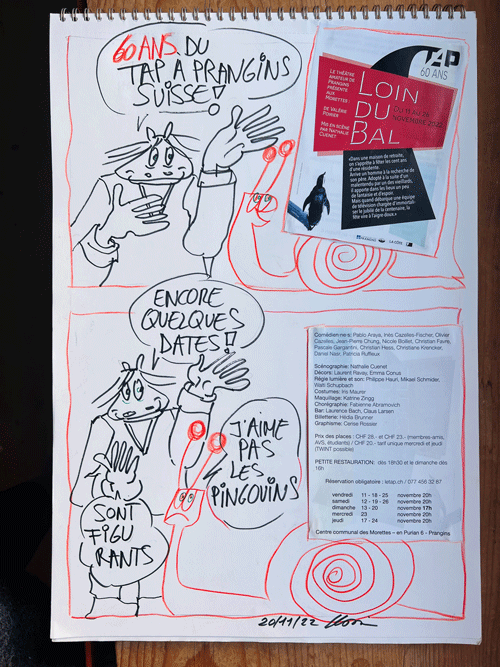 60 ANS. DU
TAP. A PRANGINS
SUISSE!
TAP
60 ANS
LE THÉÂTRE
AMATEUR DE
PRANGINS
PRÉSENTE
AUX
MORETTES :
LOIN
DU
BAL
DE VALÉRIE
POIRIER
MIS EN SCÈNE
PAR NATHALIE
CUENET
DU 11 AU 26
NOVEMBRE 2022
«Dans une maison de retraite,
on s'apprête à fêter les cent ans
d'une résidente.
Arrive un homme à la recherche de
son père. Adopté à la suite d'un
malentendu par un des vieillards,
il apporte dans les lieux un peu
de fantaisie et d'espoir.
Mais quand débarque une équipe
de télévision chargée d'immortali-
ser le jubilé de la centenaire, la
fête vire à l'aigre-doux.»
PRANGINS
LA CÔTE
ENCORE
QUELQUES
DATES!
J'AIME
PAS
LES
PINGOUINS
SONT
FIGU
RANTS
Comédien·ne·s: Pablo Areya, Inés Cazelles-Fischer, Olivier
Cazelles, Jean-Pierre Chung, Nicole Boillet, Christian Favre,
Pascale Gargantini, Christian Hess, Christiane Krencker,
Daniel Naar, Patricia Ruffieux
Scénographie: Nathalie Cuenet
Décors: Laurent Ravay, Emma Conus
Régie lumière et son: Philippe Heuri, Mikael Schmider,
Walti Schupbach
Costumes: Iris Maurer
Maquillage: Katrine Zingg
Chorégraphie: Fabienne Abramovich
Bar: Laurence Bach, Claus Larsen
Billetterie: Hédia Brunner
Graphisme: Cerise Rossier
Prix des places : CHF 28.- et CHF 23.- (membres-amis,
AVS, étudiants) / CHF 20.- tarif unique mercredi et jeudi
(TWINT possible)
PETITE RESTAURATION: dès 18h30 et le dimanche dès
16h
Réservation obligatoire : letap.ch / 077 456 32 87
vendredi 11 - 18 - 25 novembre 20h
samedi 12 - 19 - 26 novembre 20h
dimanche 13 - 20 novembre 17h
mercredi 23 novembre 20h
jeudi 17 - 24 novembre 20h
Centre communal des Morettes – en Purian 6 - Prangins
20/11/22